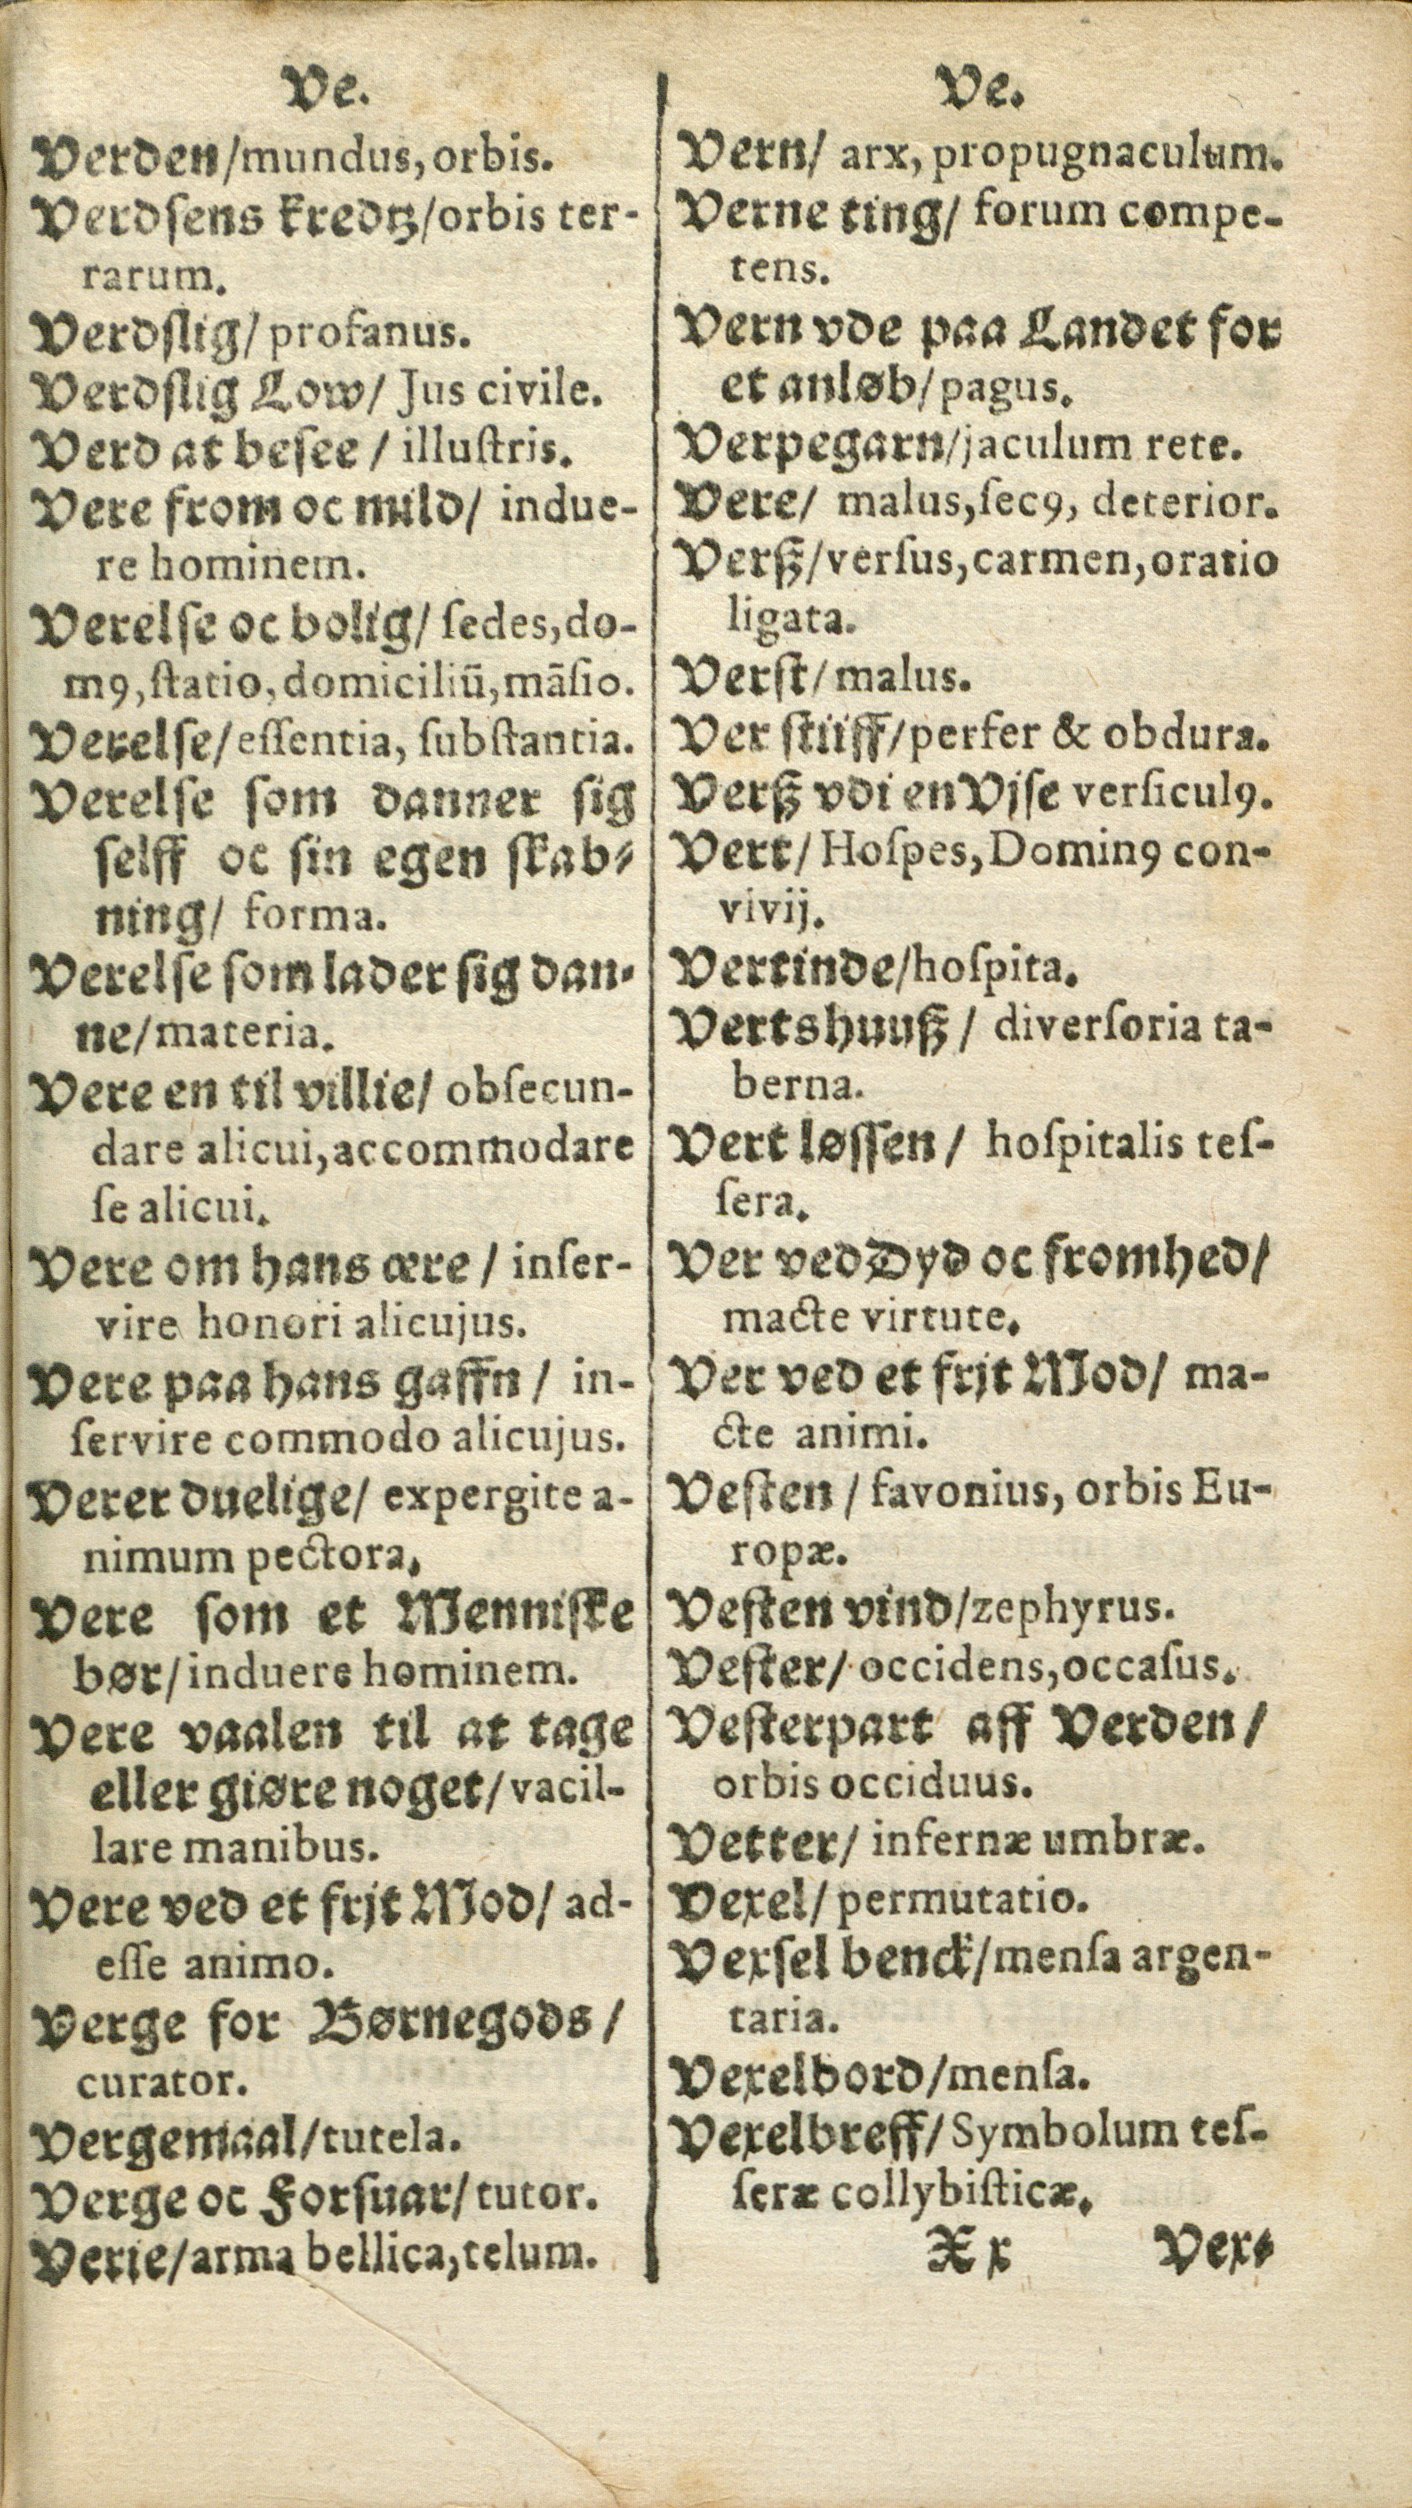 Ve.
Verden/mundus, orbis.
Verdſens kredtz/orbis ter-
rarum.
Verdſlig/ profanus.
Verdſlig Low/ Jus civile.
Verd at beſee / illuſtris.
Vere from oc mild/ indue-
re hominem.
Verelſe oc bolig/ ſedes, do-
mꝰ, ſtatio, domiciliū, māſio.
Verelſe/eſſentia, ſubſtantia.
Verelſe ſom danner ſig
ſelff oc ſin egen ſkab-
ning/ forma.
Verelſe ſom lader ſig dan-
ne/materia.
Vere en til villie/ obſecun-
dare alicui, accommodare
ſe alicui.
Vere om hans ære / inſer-
vire honori alicujus.
Vere paa hans gaffn / in-
ſervire commodo alicujus.
Verer duelige/ expergite a-
nimum pectora.
Vere ſom et Menniſke
bør/induere hominem.
Vere vaalen til at tage
eller giøre noget/vacil-
lare manibus.
Vere ved et frjt Mod/ ad-
eſſe animo.
Verge for Børnegods /
curator.
Vergemaal/tutela.
Verge oc Forſuar/tutor.
Verie/arma bellica, telum.
Ve.
Vern/ arx, propugnaculum.
Verne ting/ forum compe-
tens.
Vern vde paa Landet for
et anløb/pagus.
Verpegarn/jaculum rete.
Vere/ malus, ſecꝰ, deterior.
Verß/verſus, carmen, oratio
ligata.
Verſt/malus.
Ver ſtiiff/perfer & obdura.
Verß vdi en Vjſe verſiculꝰ.
Vert/Hoſpes, Dominꝰ con-
vivij.
Vertinde/hoſpita.
Vertshuuß / diverſoria ta-
berna.
Vert løſſen / hoſpitalis teſ-
ſera.
Ver ved Dyd oc fromhed/
macte virtute.
Ver ved et frjt Mod/ ma-
cte animi.
Veſten / favonius, orbis Eu-
ropæ.
Veſten vind/zephyrus.
Veſter/ occidens, occaſus.
Veſterpart aff Verden/
orbis occiduus.
Vetter/ infernæ umbræ.
Vexel/ permutatio.
Vexſel benck/menſa argen-
taria.
Vexelbord/menſa.
Vexelbreff/Symbolum teſ-
ſeræ collybiſticæ.
Xx Vex-